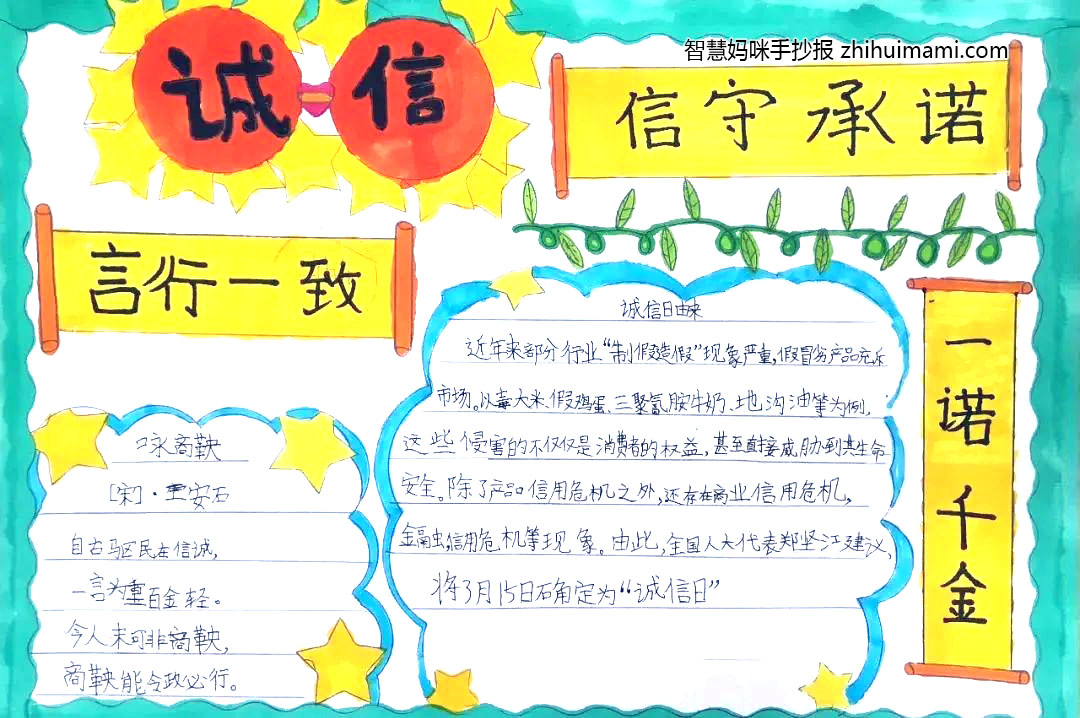 智慧妈咪手抄报 zhihuimami.com
诚信
信守承诺
言行一致
诚信日由来
近年来部分行业“制假造假”现象严重,假冒劣产品充斥
市场。从毒大米、假鸡蛋、三聚氰胺牛奶、地沟油等为例,
这些侵害的不仅仅是消费者的权益,甚至直接威胁到其生命
安全。除了产品信用危机之外,还存在商业信用危机,
金融信用危机等现象。由此,全国人大代表郑坚江建议,
将3月15日确定为“诚信日”
一诺千金
咏商鞅
[宋]·王安石
自古驱民在信诚,
一言为重百金轻。
今人未可非商鞅,
商鞅能令政必行。